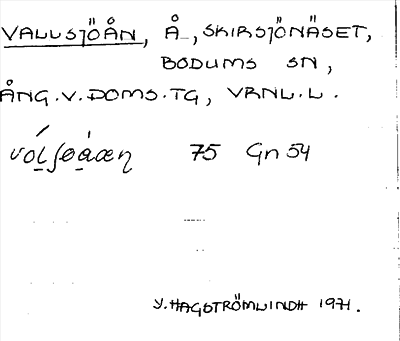 VALLSJÖÅN, Å, SKIRSJÖNÄSET,
BODUMS SN,
ÅNG.V.DOMS.TG, VRNL.L.
75 Gn 54
Y. HAGSTRÖM LINDH 1971.